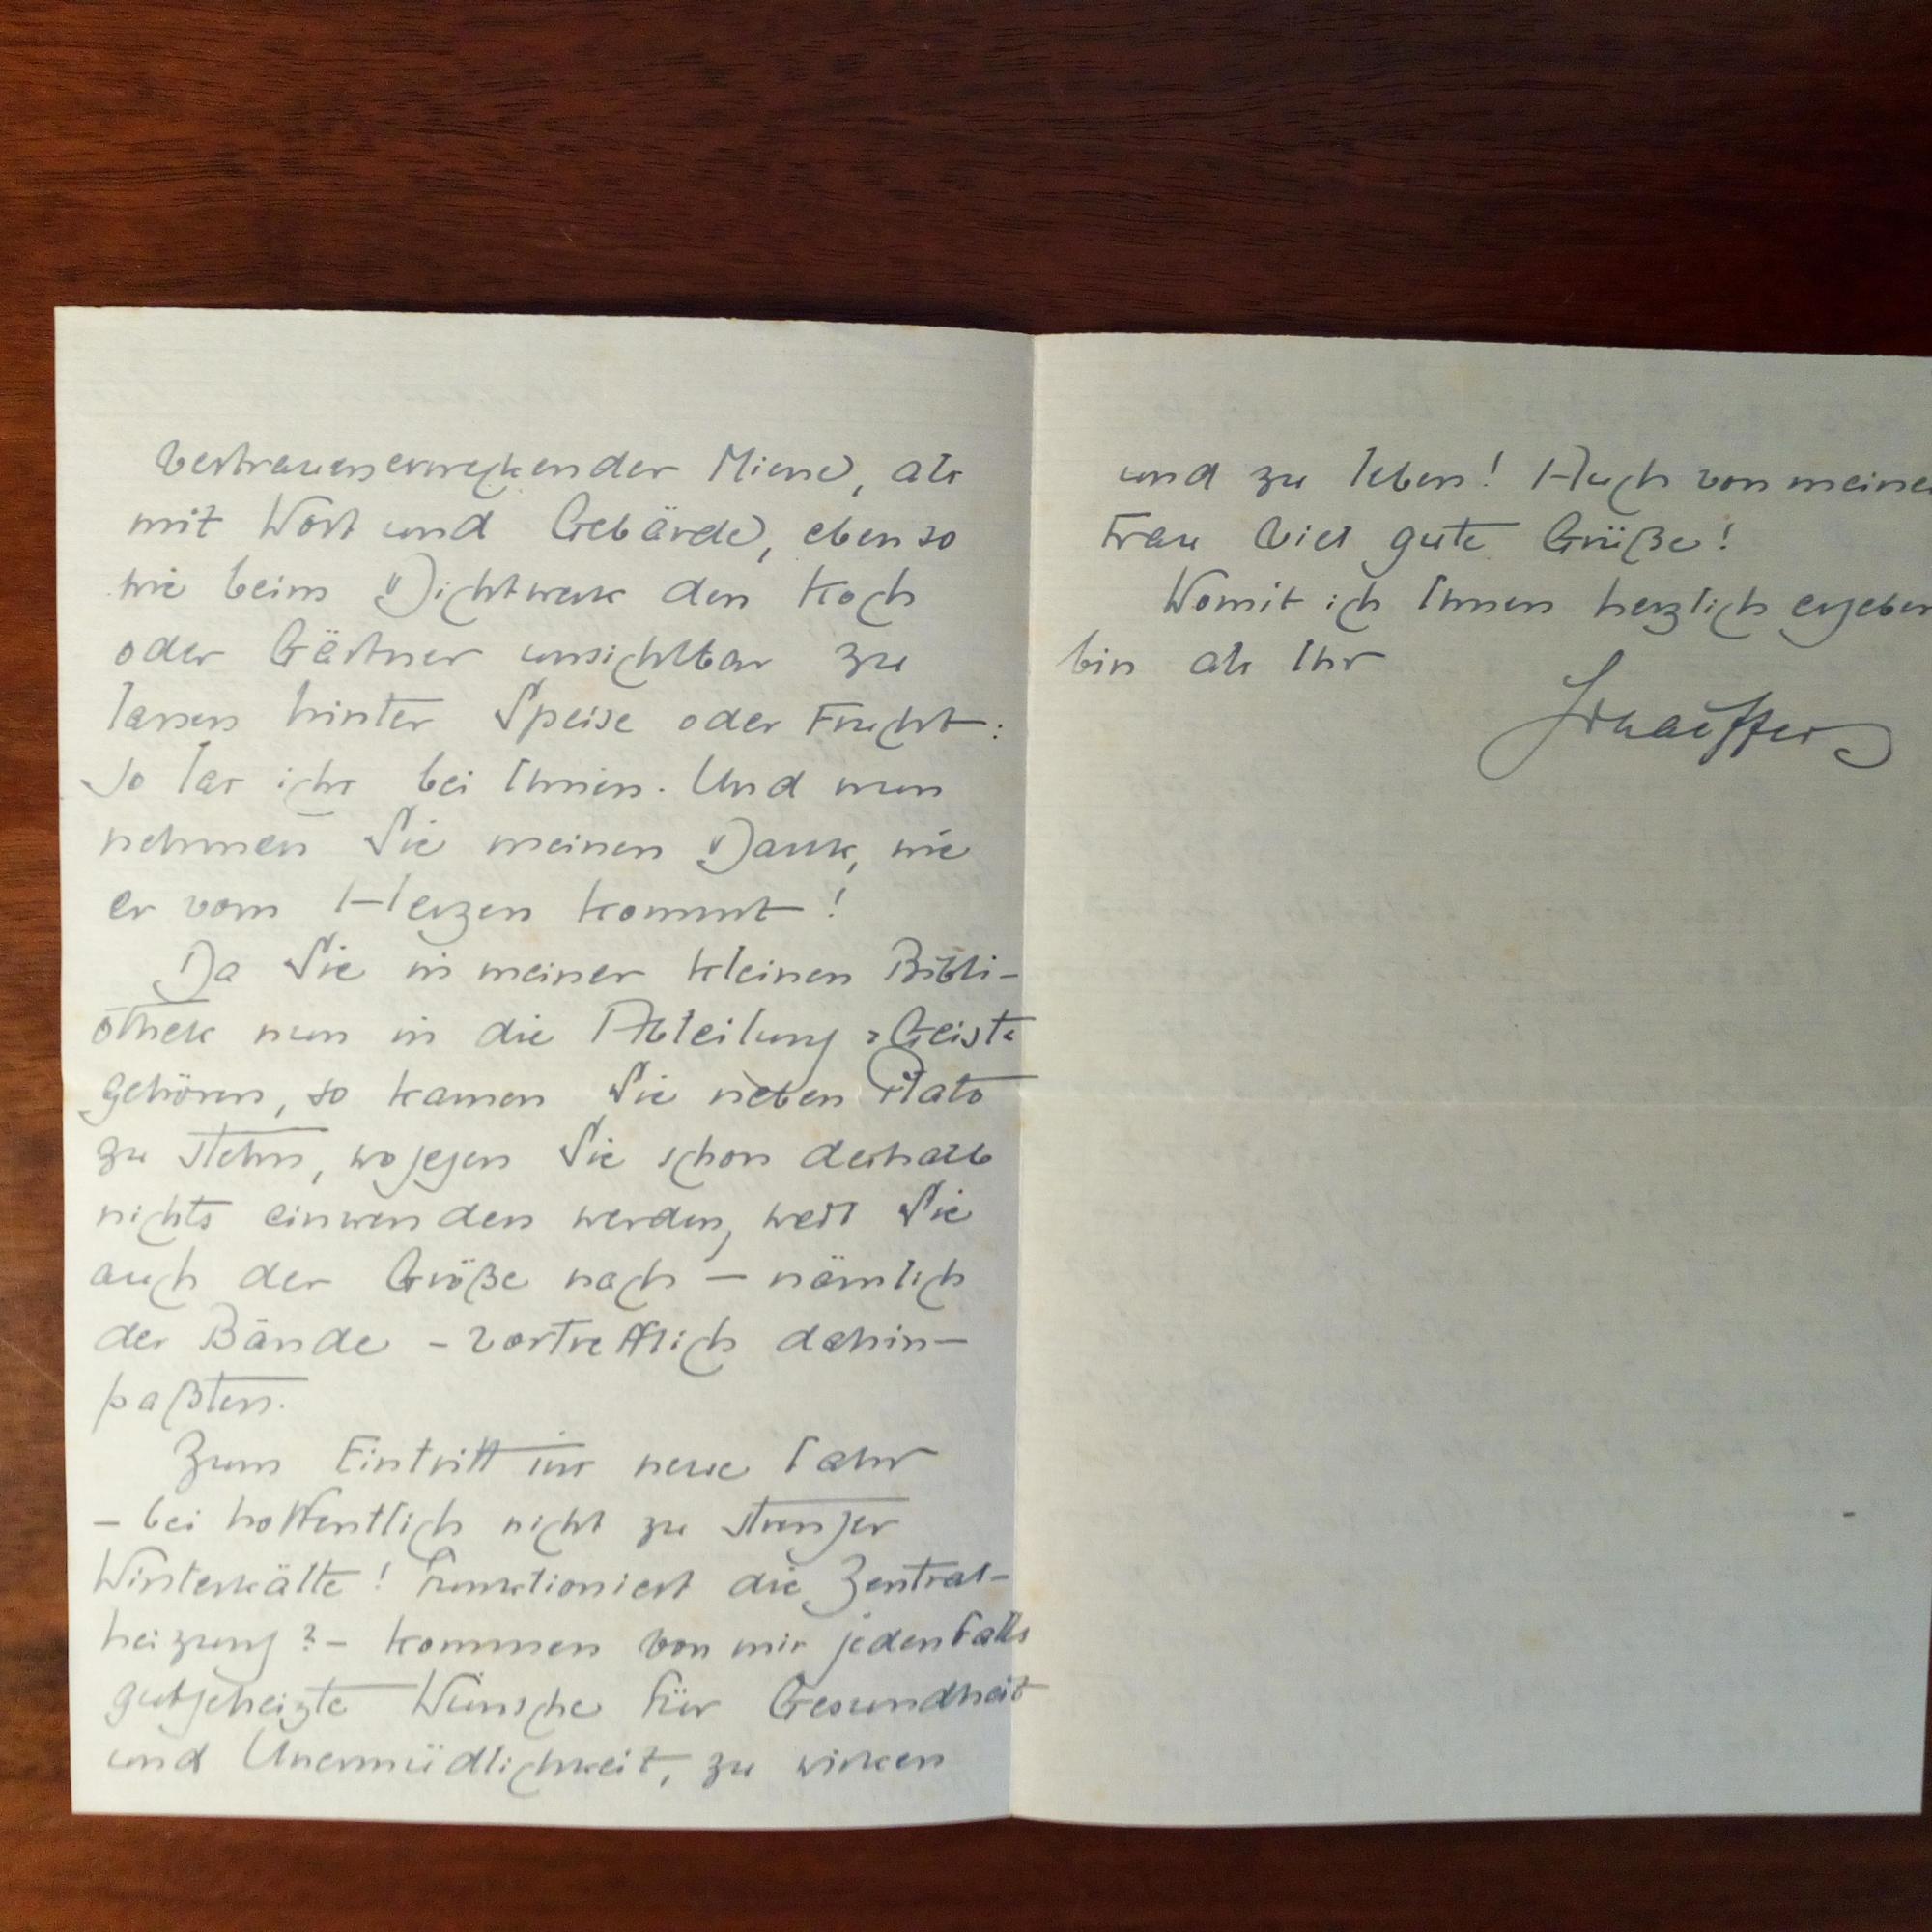 vertrauenerweckender Miene, als
mit Wort und Gebärde, ebenso
wie beim Dichtwerk den Koch
oder Gärtner unsichtbar zu
lassen hinter Speise oder Frucht:
so las ichs bei Ihnen. Und nun
nehmen Sie meinen Dank, wie
er vom Herzen kommt!
Da Sie in meiner kleinen Bibli-
othek nun in die Abteilung »Geist«
gehören, so kamen Sie neben Plato
zu stehn, wogegen Sie schon deshalb
nichts einwenden werden, weil Sie
auch der Größe nach – nämlich
der Bände – vortrefflich dahin-
paßten.
Zum Eintritt ins neue Jahr
– bei hoffentlich nicht zu strenger
Winterkälte! Funktioniert die Zentral-
heizung? – kommen von mir jedenfalls
gutgeheizte Wünsche für Gesundheit
und Unermüdlichkeit, zu wirken
und zu leben! Auch von meiner
Frau viel gute Grüße!
Womit ich Ihnen herzlich ergeben
bin als Ihr
Schaeffer